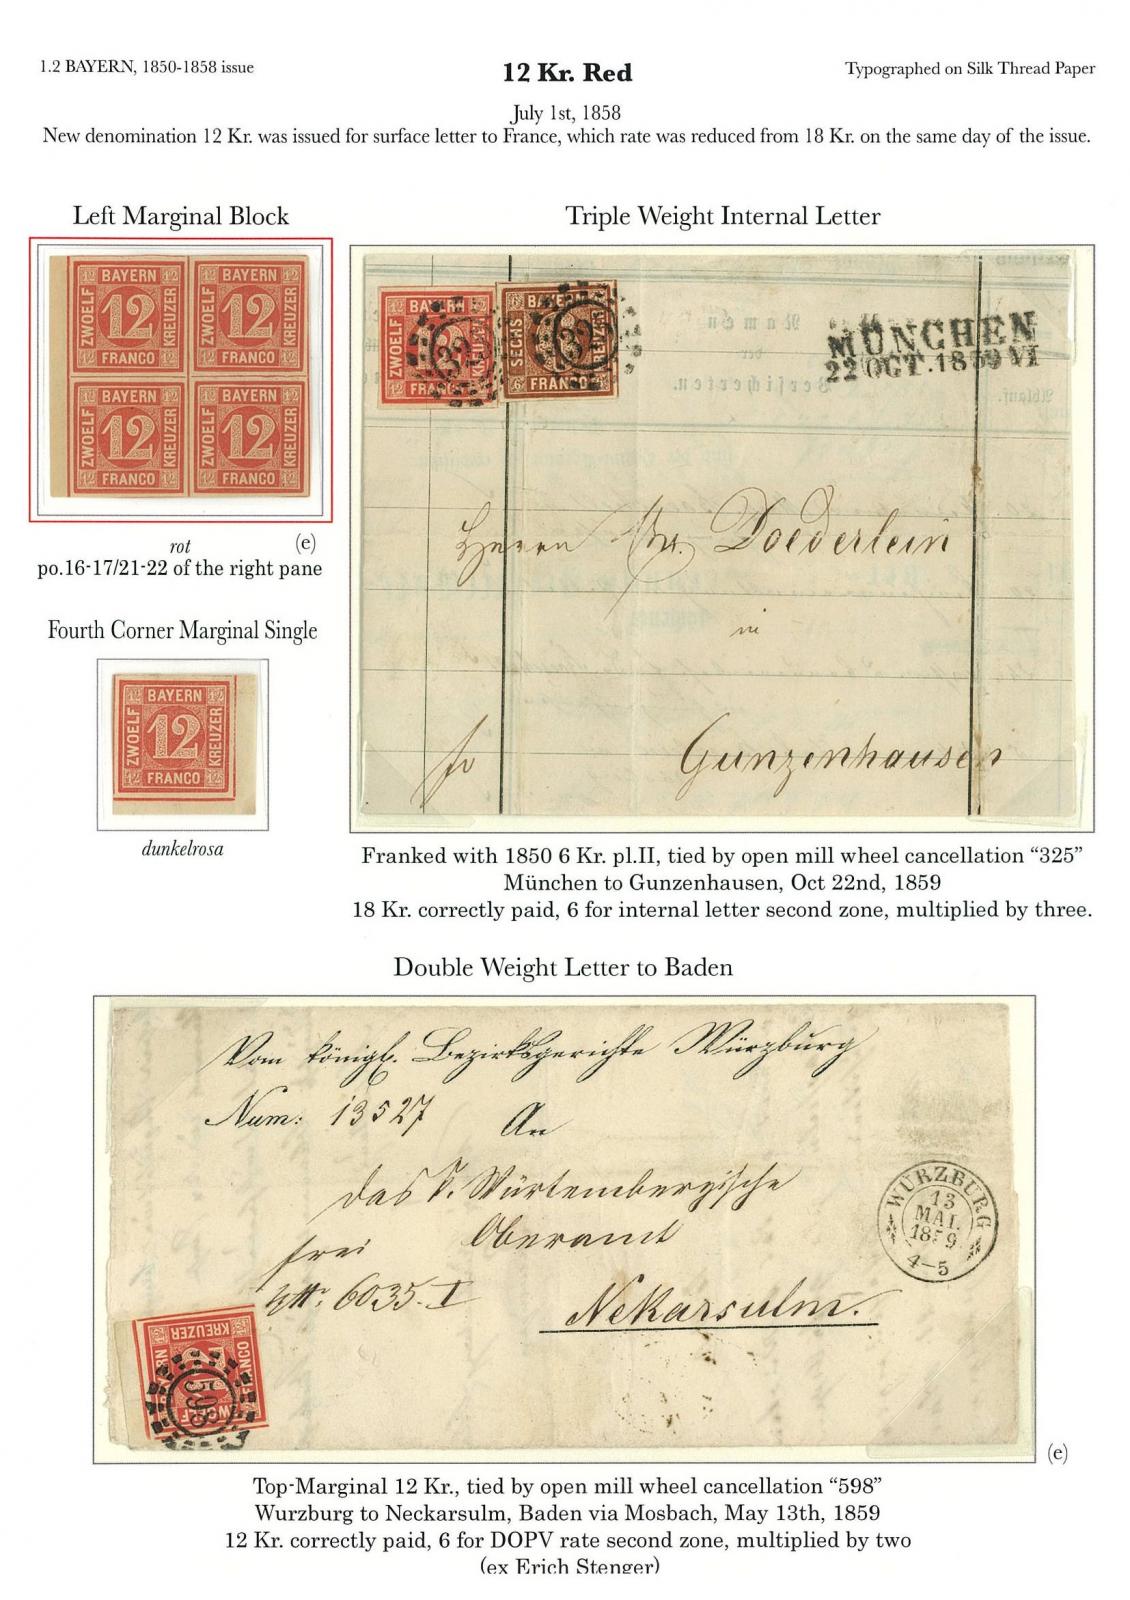 1.2 BAYERN, 1850-1858 issue
12 Kr. Red
Typographed on Silk Thread Paper
July 1st, 1858
New denomination 12 Kr. was issued for surface letter to France, which rate was reduced from 18 Kr. on the same day of the issue.
Left Marginal Block
12 BAYERN 12 12 BAYERN 12
ZWOELF 12 KREUZER ZWOELF 12 KREUZER
12 FRANCO 12 12 FRANCO 12
12 BAYERN 12 12 BAYERN 12
ZWOELF 12 KREUZER ZWOELF 12 KREUZER
12 FRANCO 12 12 FRANCO 12
rot (e)
po.16-17/21-22 of the right pane
Fourth Corner Marginal Single
12 BAYERN 12
ZWOELF 12 KREUZER
12 FRANCO 12
dunkelrosa
Triple Weight Internal Letter
ZWOELF
SECHS
FRANCO
MÜNCHEN
22 OCT. 1859 VI
Herrn Doederlein
in
Gunzenhausen
Franked with 1850 6 Kr. pl.II, tied by open mill wheel cancellation “325”
München to Gunzenhausen, Oct 22nd, 1859
18 Kr. correctly paid, 6 for internal letter second zone, multiplied by three.
Double Weight Letter to Baden
Vom königl. Bezirksgerichte Würzburg
Num: 13527 An
das K. Würtembergische
frei Oberamt
6035. I
Nekarsulm.
WÜRZBURG
13
MAI.
1859
4-5
KREUZER
FRANCO
598
(e)
Top-Marginal 12 Kr., tied by open mill wheel cancellation “598”
Wurzburg to Neckarsulm, Baden via Mosbach, May 13th, 1859
12 Kr. correctly paid, 6 for DOPV rate second zone, multiplied by two
(ex Erich Stenger)